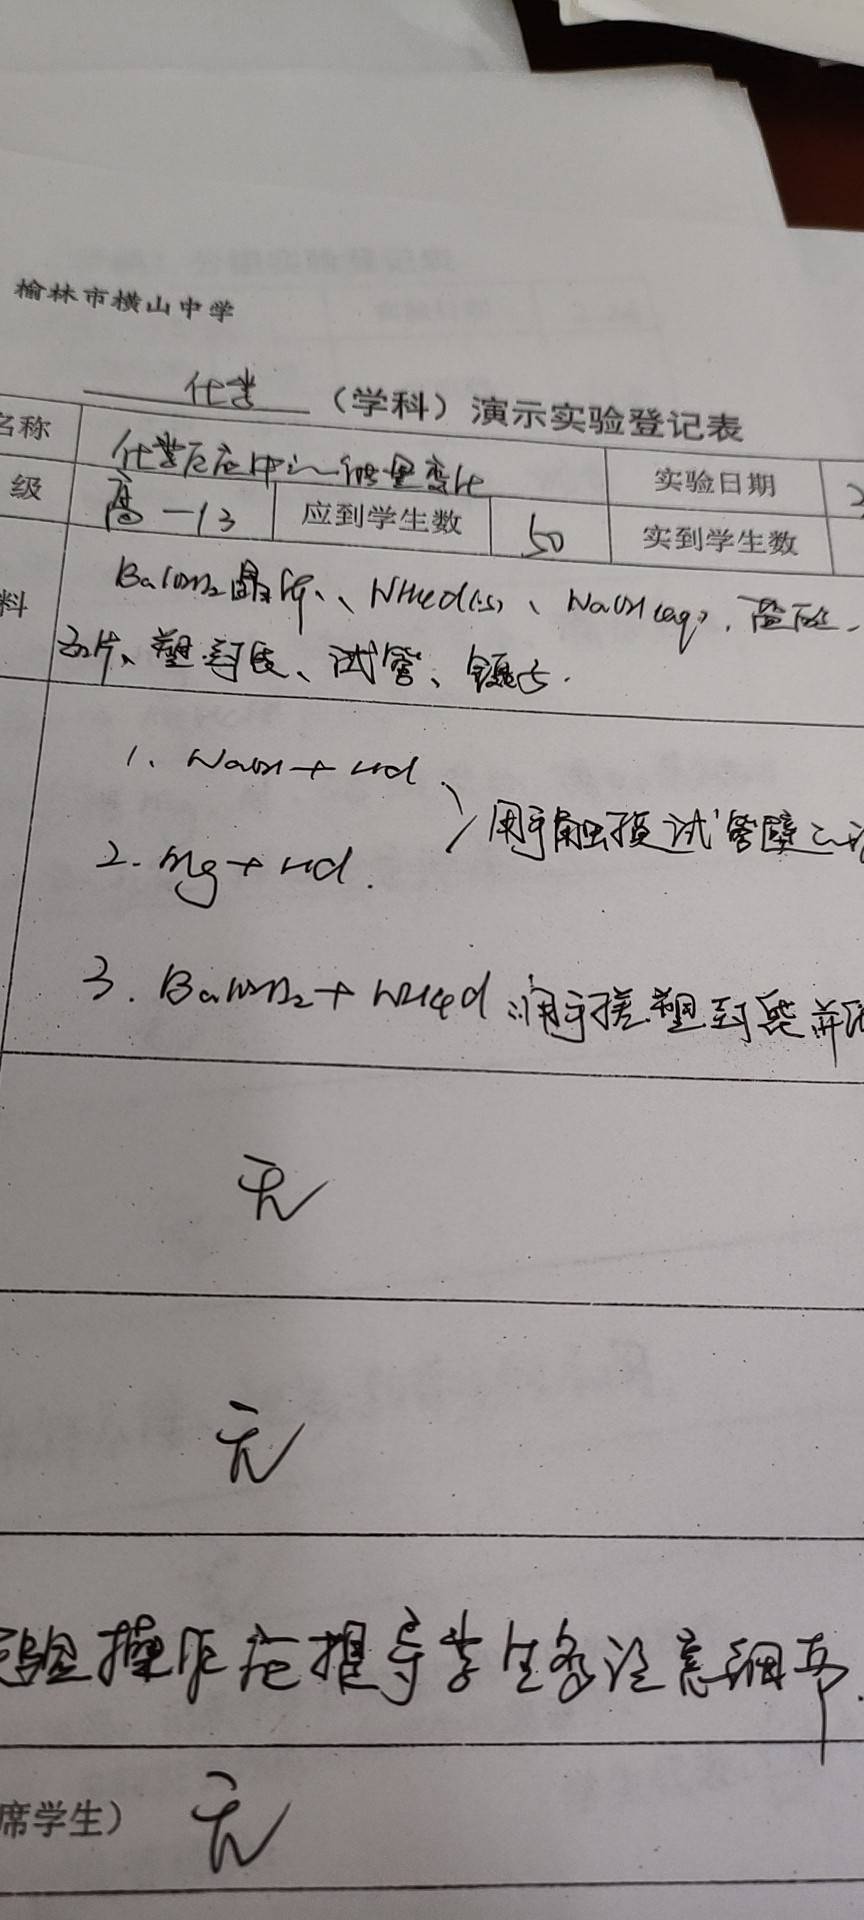 榆林市横山中学
化学（学科）演示实验登记表
名称 化学反应中的能量变化 实验日期 2
级 高一13 应到学生数 50 实到学生数
料 Ba(OH)₂晶体、NH₄Cl(s)、NaOH(aq)、盐酸、
玻片、塑封袋、试管、镊子.
1、NaOH+HCl
用手触摸试管壁
2. Mg+HCl.
3. Ba(OH)₂+NH₄Cl 用手搓塑封袋并
无
无
实验操作应指导学生多注意细节.
席学生） 无